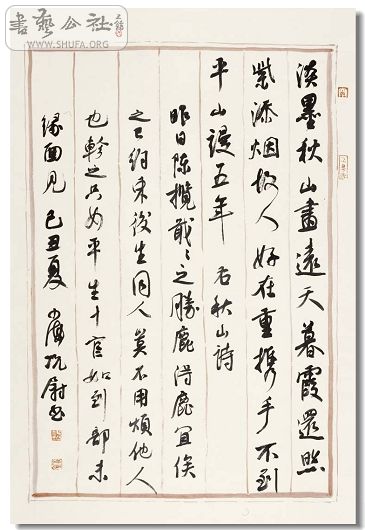 書藝公社
WWW.SHUFA.ORG
淡墨秋山畫遠天暮霞還照
紫添烟故人好在重攜手不到
平山謾五年 右秋山詩
昨日陳攬戢〻之勝鹿得鹿宜俟
之已約束後生同人莫不用煩他人
也軫之只如平生十官如到部未
緣面見 己丑夏